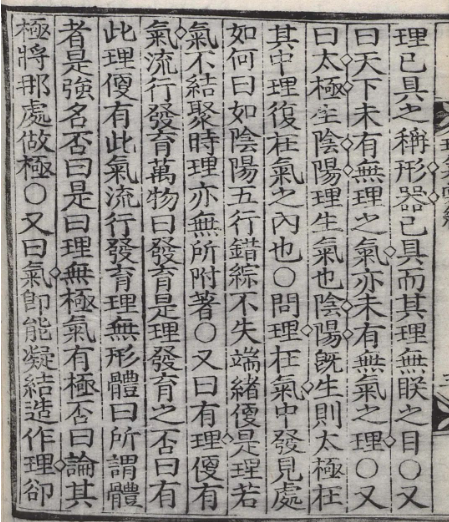 理已具之稱形器已具而其理無眹之目○又
曰天下未有無理之氣亦未有無氣之理○又
曰太極生陰陽理生氣也陰陽旣生則太極在
其中理復在氣之內也○問理在氣中發見處
如何曰如陰陽五行錯綜不失端緒便是理若
氣不結聚時理亦無所附著○又曰有理便有
氣流行發育萬物曰發育是理發育之否曰有
此理便有此氣流行發育理無形體曰所謂體
者是強名否曰是曰理無極氣有極否曰論其
極將那處做極○又曰氣卽能凝結造作理卻